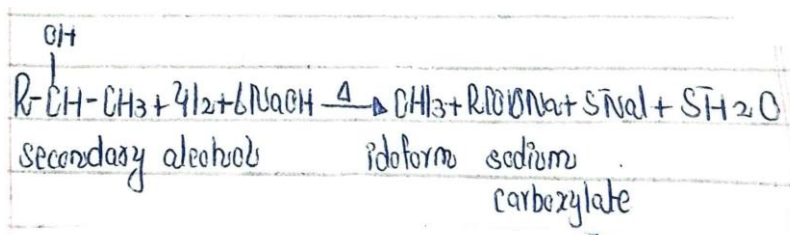 OH
R-CH-CH3 + 4I2 + 6NaOH Δ→ CHI3 + RCOONa + 5NaI + 5H2O
secondary alcohol idoform sodium
carboxylate